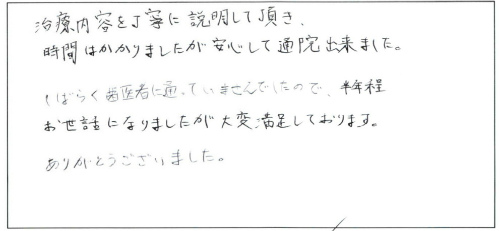 治療内容を丁寧に説明して頂き、
時間はかかりましたが安心して通院出来ました。
しばらく歯医者に通っていませんでしたので、半年程
お世話になりましたが大変満足しております。
ありがとうございました。